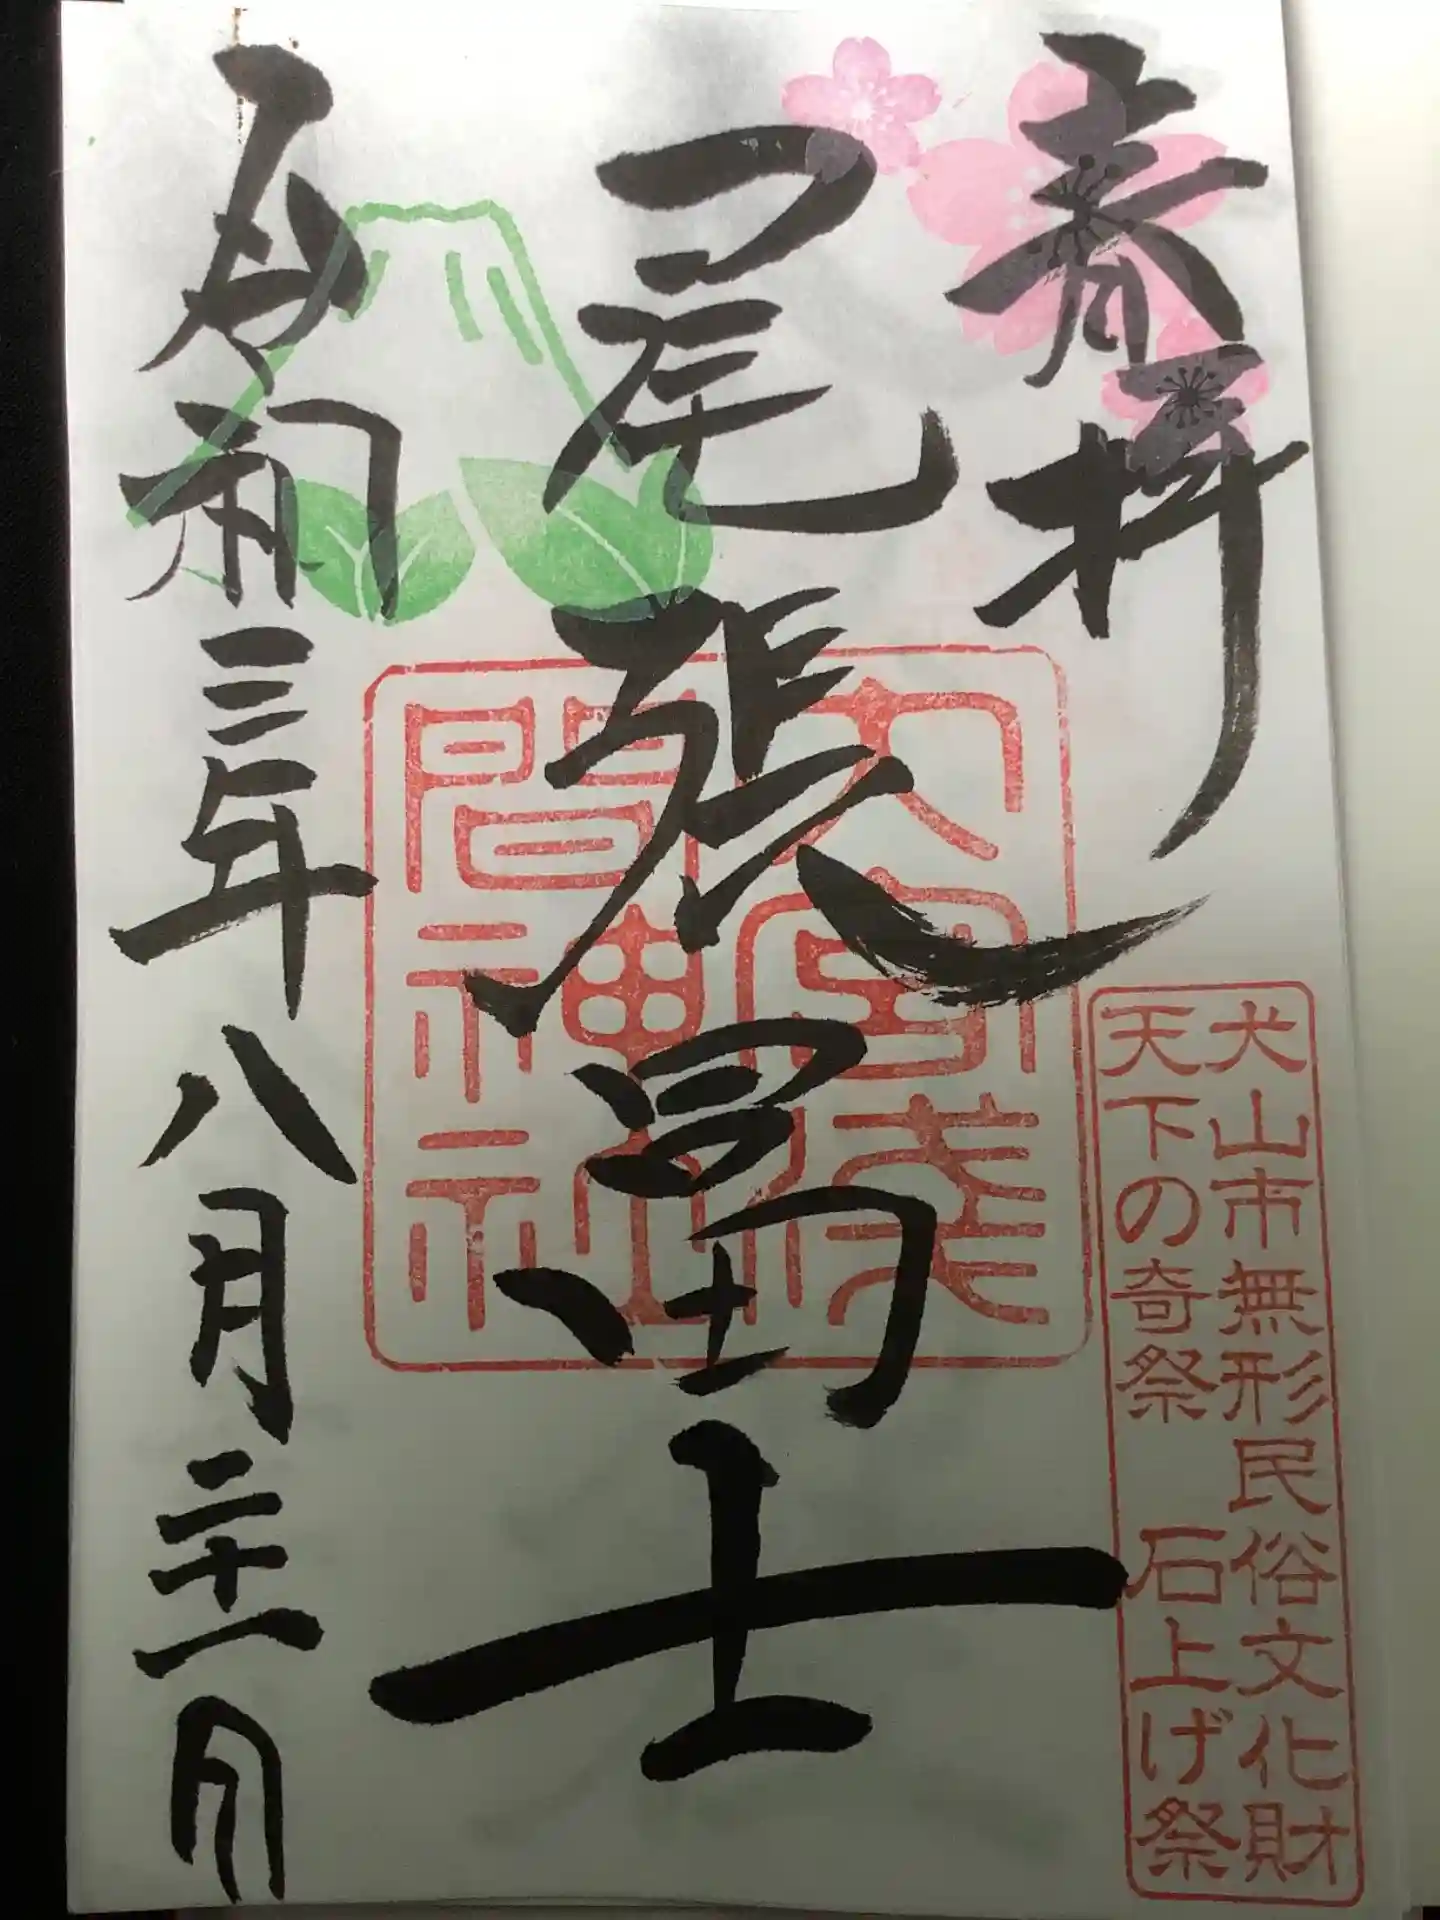 奉拝
犬山市無形民俗文化財
天下の奇祭 石上げ祭
尾張冨士
大宮淺
間神社
令和三年八月二十一日